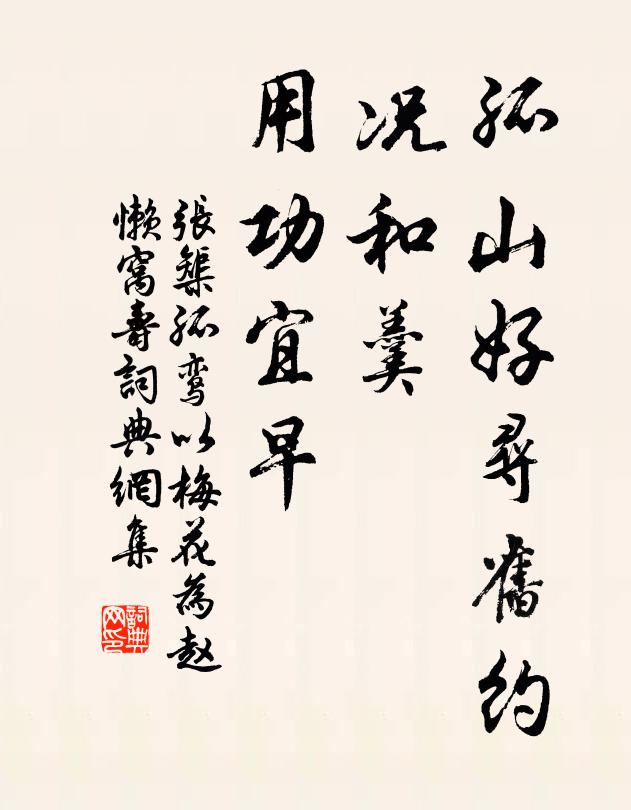 孤山好尋舊約
况和羹
用功宜早
張榘孤鸾以梅花為赵
懒窩壽詞典網集
詞典網印